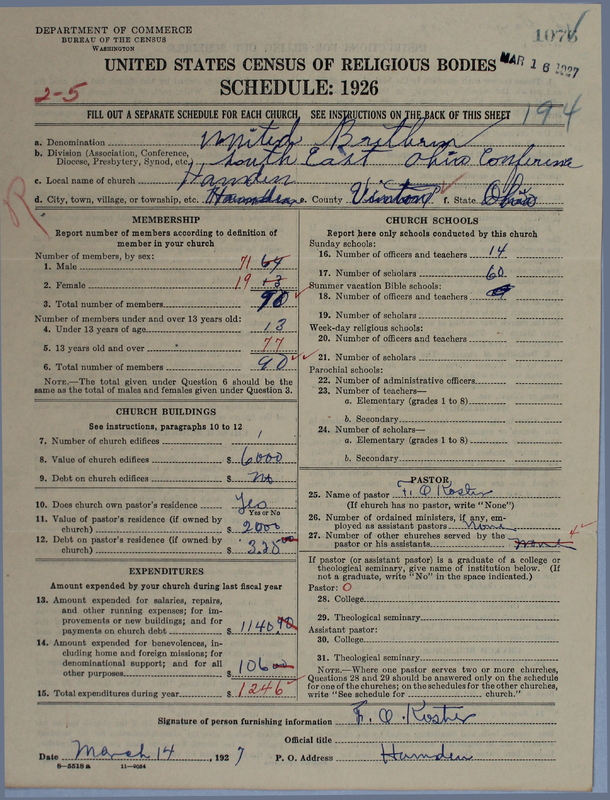 DEPARTMENT OF COMMERCE
BUREAU OF THE CENSUS
WASHINGTON
1076
MAR 16 1927
UNITED STATES CENSUS OF RELIGIOUS BODIES
SCHEDULE: 1926
2-5
194
FILL OUT A SEPARATE SCHEDULE FOR EACH CHURCH. SEE INSTRUCTIONS ON THE BACK OF THIS SHEET
a. Denomination United Brethern
b. Division (Association, Conference, Diocese, Presbytery, Synod, etc.) South East Ohio Conference
c. Local name of church Hamden
d. City, town, village, or township, etc. Hamden e. County Vinton f. State Ohio
R
MEMBERSHIP
Report number of members according to definition of
member in your church
Number of members, by sex:
1. Male 71
2. Female 19
3. Total number of members 90
Number of members under and over 13 years old:
4. Under 13 years of age 13
5. 13 years old and over 77
6. Total number of members 90
NOTE.—The total given under Question 6 should be
same as the total of males and females given under Question 3.
CHURCH BUILDINGS
See instructions, paragraphs 10 to 12
7. Number of church edifices 1
8. Value of church edifices $ 6000
9. Debt on church edifices $ No
10. Does church own pastor's residence? Yes
Yes or No
11. Value of pastor's residence (if owned by
church) $ 2000
12. Debt on pastor's residence (if owned by
church) $ 325.00
EXPENDITURES
Amount expended by your church during last fiscal year
13. Amount expended for salaries, repairs,
and other running expenses; for im-
provements or new buildings; and for
payments on church debt $ 1140.90
14. Amount expended for benevolences, in-
cluding home and foreign missions; for
denominational support; and for all
other purposes $ 106.00
15. Total expenditures during year $ 1246
CHURCH SCHOOLS
Report here only schools conducted by this church
Sunday schools:
16. Number of officers and teachers 14
17. Number of scholars 60
Summer vacation Bible schools:
18. Number of officers and teachers
19. Number of scholars
Week-day religious schools:
20. Number of officers and teachers
21. Number of scholars
Parochial schools:
22. Number of administrative officers
23. Number of teachers—
a. Elementary (grades 1 to 8)
b. Secondary
24. Number of scholars—
a. Elementary (grades 1 to 8)
b. Secondary
PASTOR
25. Name of pastor F. O. Koster
(If church has no pastor, write "None")
26. Number of ordained ministers, if any, em-
ployed as assistant pastors None
27. Number of other churches served by the
pastor or his assistants 4
If pastor (or assistant pastor) is a graduate of a college or
theological seminary, give name of institution below. (If
not a graduate, write "No" in the space indicated.)
Pastor: O
28. College
29. Theological seminary
Assistant pastor:
30. College
31. Theological seminary
NOTE.—Where one pastor serves two or more churches,
Questions 28 and 29 should be answered only on the schedule
for one of the churches; on the schedules for the other churches,
write "See schedule for ______ church."
Signature of person furnishing information F. O. Koster
Official title
Date March 14, 1927 P. O. Address Hamden
8-5518a 11-9054